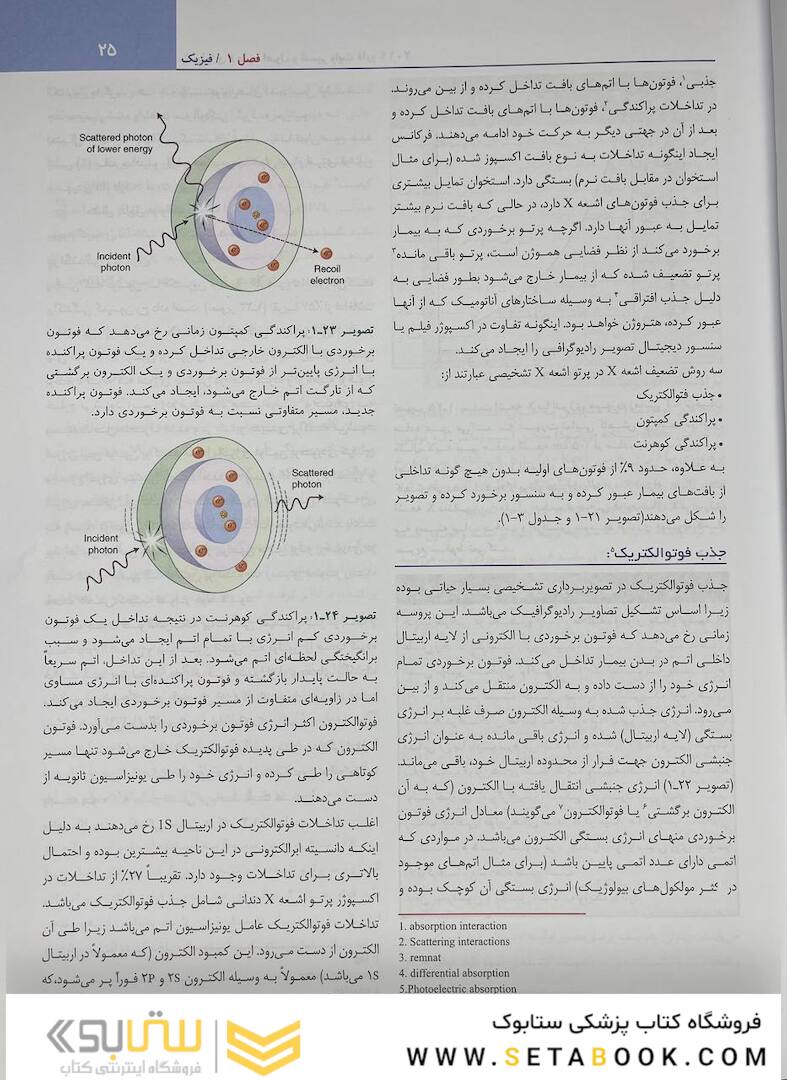 ۲۵
فصل ۱ / فیزیک
جذبی۱، فوتون‌ها با اتم‌های بافت تداخل کرده و از بین می‌روند.
در تداخلات پراکندگی۲، فوتون‌ها با اتم‌های بافت تداخل کرده و
بعد از آن در جهتی دیگر به حرکت خود ادامه می‌دهند. فرکانس
ایجاد اینگونه تداخلات به نوع بافت اکسپوز شده (برای مثال
استخوان در مقابل بافت نرم) بستگی دارد. استخوان تمایل بیشتری
برای جذب فوتون‌های اشعه X دارد، در حالی که بافت نرم بیشتر
تمایل به عبور آنها دارد. اگرچه پرتو برخوردی که به بیمار
برخورد می‌کند از نظر فضایی هموژن است، پرتو باقی مانده۳
پرتو تضعیف شده که از بیمار خارج می‌شود بطور فضایی به
دلیل جذب افتراقی۴ به وسیله ساختارهای آناتومیک که از آنها
عبور کرده، هتروژن خواهد بود. اینگونه تفاوت در اکسپوژر فیلم یا
سنسور دیجیتال تصویر رادیوگرافی را ایجاد می‌کند.
سه روش تضعیف اشعه X در پرتو اشعه X تشخیصی عبارتند از:
• جذب فتوالکتریک
• پراکندگی کمپتون
• پراکندگی کوهرنت
به علاوه، حدود ۹٪ از فوتون‌های اولیه بدون هیچ گونه تداخلی
از بافت‌های بیمار عبور کرده و به سنسور برخورد کرده و تصویر
را شکل می‌دهند(تصویر ۲۱-۱ و جدول ۳-۱).
جذب فوتوالکتریک۵:
جذب فوتوالکتریک در تصویربرداری تشخیصی بسیار حیاتی بوده
زیرا اساس تشکیل تصاویر رادیوگرافیک می‌باشد. این پروسه
زمانی رخ می‌دهد که فوتون برخوردی با الکترونی از لایه اربیتال
داخلی اتم در بدن بیمار تداخل می‌کند. فوتون برخوردی تمام
انرژی خود را از دست داده و به الکترون منتقل می‌کند و از بین
می‌رود. انرژی جذب شده به وسیله الکترون صرف غلبه بر انرژی
بستگی (لایه اربیتال) شده و انرژی باقی مانده به عنوان انرژی
جنبشی الکترون جهت فرار از محدوده اربیتال خود، باقی می‌ماند.
(تصویر ۲۲-۱) انرژی جنبشی انتقال یافته با الکترون (که به آن
الکترون برگشتی۶ یا فوتوالکترون۷ می‌گویند) معادل انرژی فوتون
برخوردی منهای انرژی بستگی الکترون می‌باشد. در مواردی که
اتمی دارای عدد اتمی پایین باشد (برای مثال اتم‌های موجود
در کثر مولکول‌های بیولوژیک) انرژی بستگی آن کوچک بوده و
1. absorption interaction
2. Scattering interactions
3. remnat
4. differential absorption
5.Photoelectric absorption
Scattered photon
of lower energy
Incident
photon
Recoil
electron
تصویر ۲۳-۱: پراکندگی کمپتون زمانی رخ می‌دهد که فوتون
برخوردی با الکترون خارجی تداخل کرده و یک فوتون پراکنده
با انرژی پایین‌تر از فوتون برخوردی و یک الکترون برگشتی
که از تارگت اتم خارج می‌شود، ایجاد می‌کند. فوتون پراکنده
جدید، مسیر متفاوتی نسبت به فوتون برخوردی دارد.
Scattered
photon
Incident
photon
تصویر ۲۴-۱: پراکندگی کوهرنت در نتیجه تداخل یک فوتون
برخوردی کم انرژی با تمام اتم ایجاد می‌شود و سبب
برانگیختگی لحظه‌ای اتم می‌شود. بعد از این تداخل، اتم سریعاً
به حالت پایدار بازگشته و فوتون پراکنده‌ای با انرژی مساوی
اما در زاویه‌ای متفاوت از مسیر فوتون برخوردی ایجاد می‌کند.
فوتوالکترون اکثر انرژی فوتون برخوردی را بدست می‌آورد. فوتون
الکترون که در طی پدیده فوتوالکتریک خارج می‌شود تنها مسیر
کوتاهی را طی کرده و انرژی خود را طی یونیزاسیون ثانویه از
دست می‌دهند.
اغلب تداخلات فوتوالکتریک در اربیتال 1S رخ می‌دهند به دلیل
اینکه دانسیته ابرالکترونی در این ناحیه بیشترین بوده و احتمال
بالاتری برای تداخلات وجود دارد. تقریباً ۲۷٪ از تداخلات در
اکسپوژر پرتو اشعه X دندانی شامل جذب فوتوالکتریک می‌باشد.
تداخلات فوتوالکتریک عامل یونیزاسیون اتم می‌باشد زیرا طی آن
الکترون از دست می‌رود. این کمبود الکترون (که معمولاً در اربیتال
۱S می‌باشد) معمولاً به وسیله الکترون ۲S و ۲P فوراً پر می‌شود،که
فروشگاه کتاب پزشکی ستابوک
WWW.SETABOOK.COM
ستابوک
فروشگاه اینترنتی کتاب